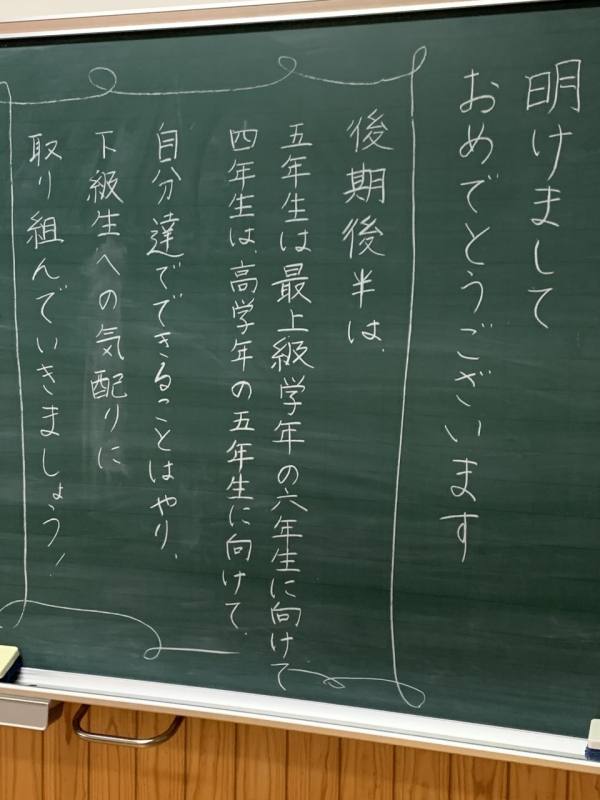 明けまして
おめでとうございます
後期後半は、
五年生は最上級学年の六年生に向けて
四年生は、高学年の五年生に向けて、
自分達でできることはやり、
下級生への気配りに
取り組んでいきましょう!